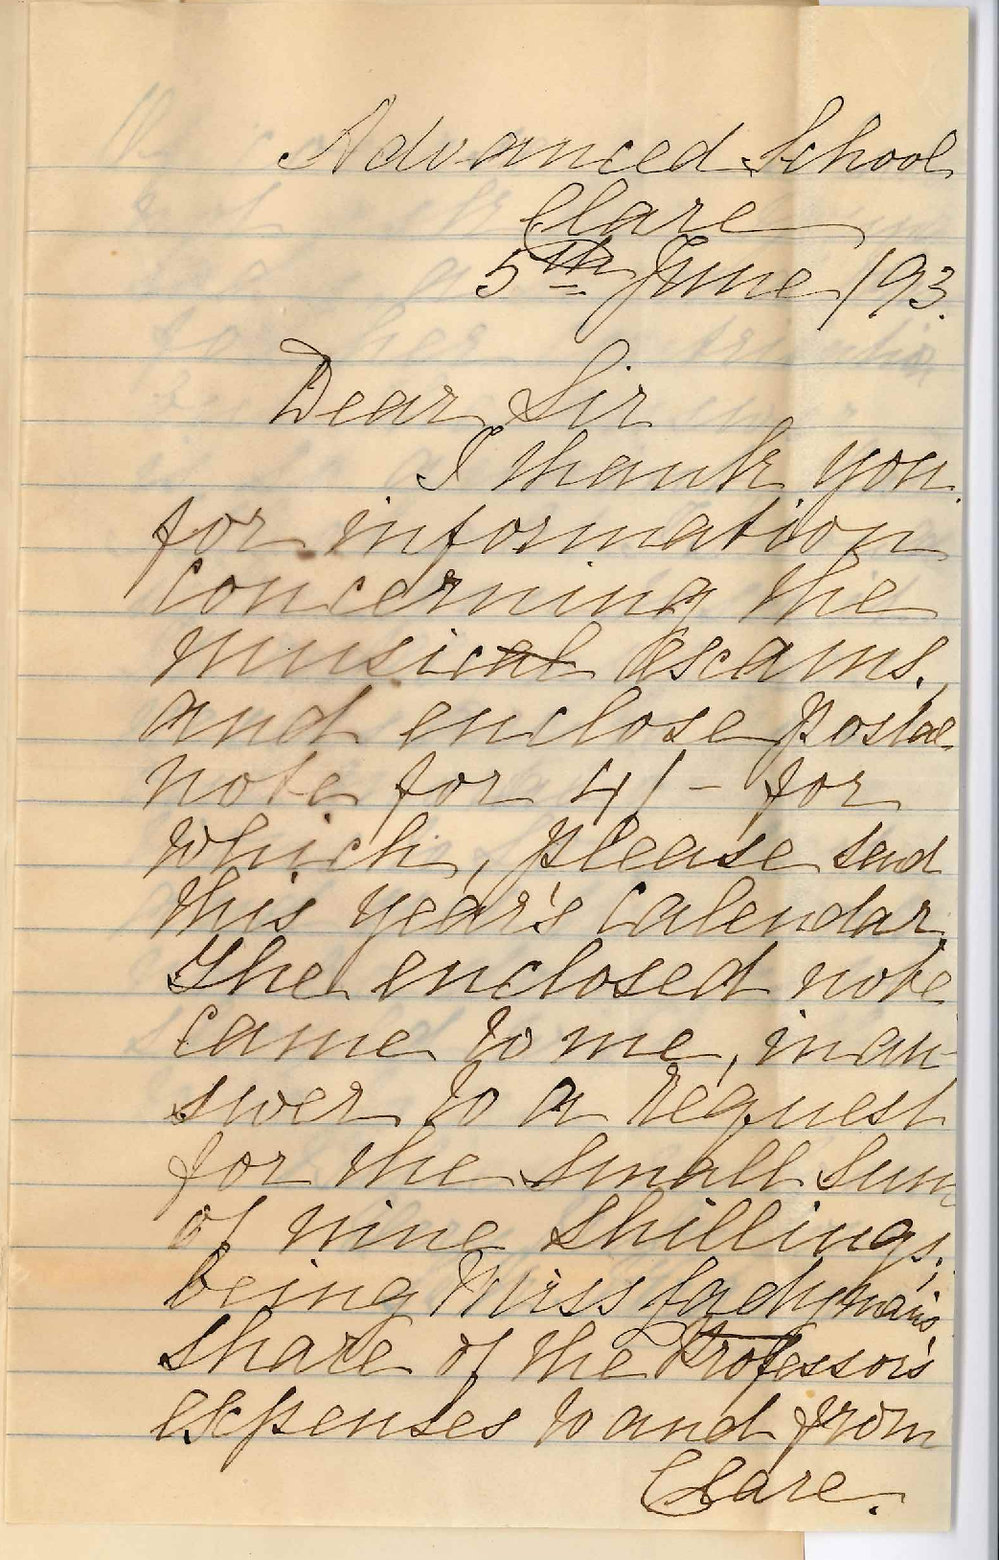 Advanced School
Clare
5th June /93.
Dear Sir
I thank you
for information
concerning the
musical Exams.,
and enclose postal
note for 4/- for
which, please send
this year's Calendar.
The enclosed note
came to me, in an-
swer to a request
for the small sum
of nine shillings,
being Miss Ladyman's
share of the Professor's
expenses to and from
Clare.